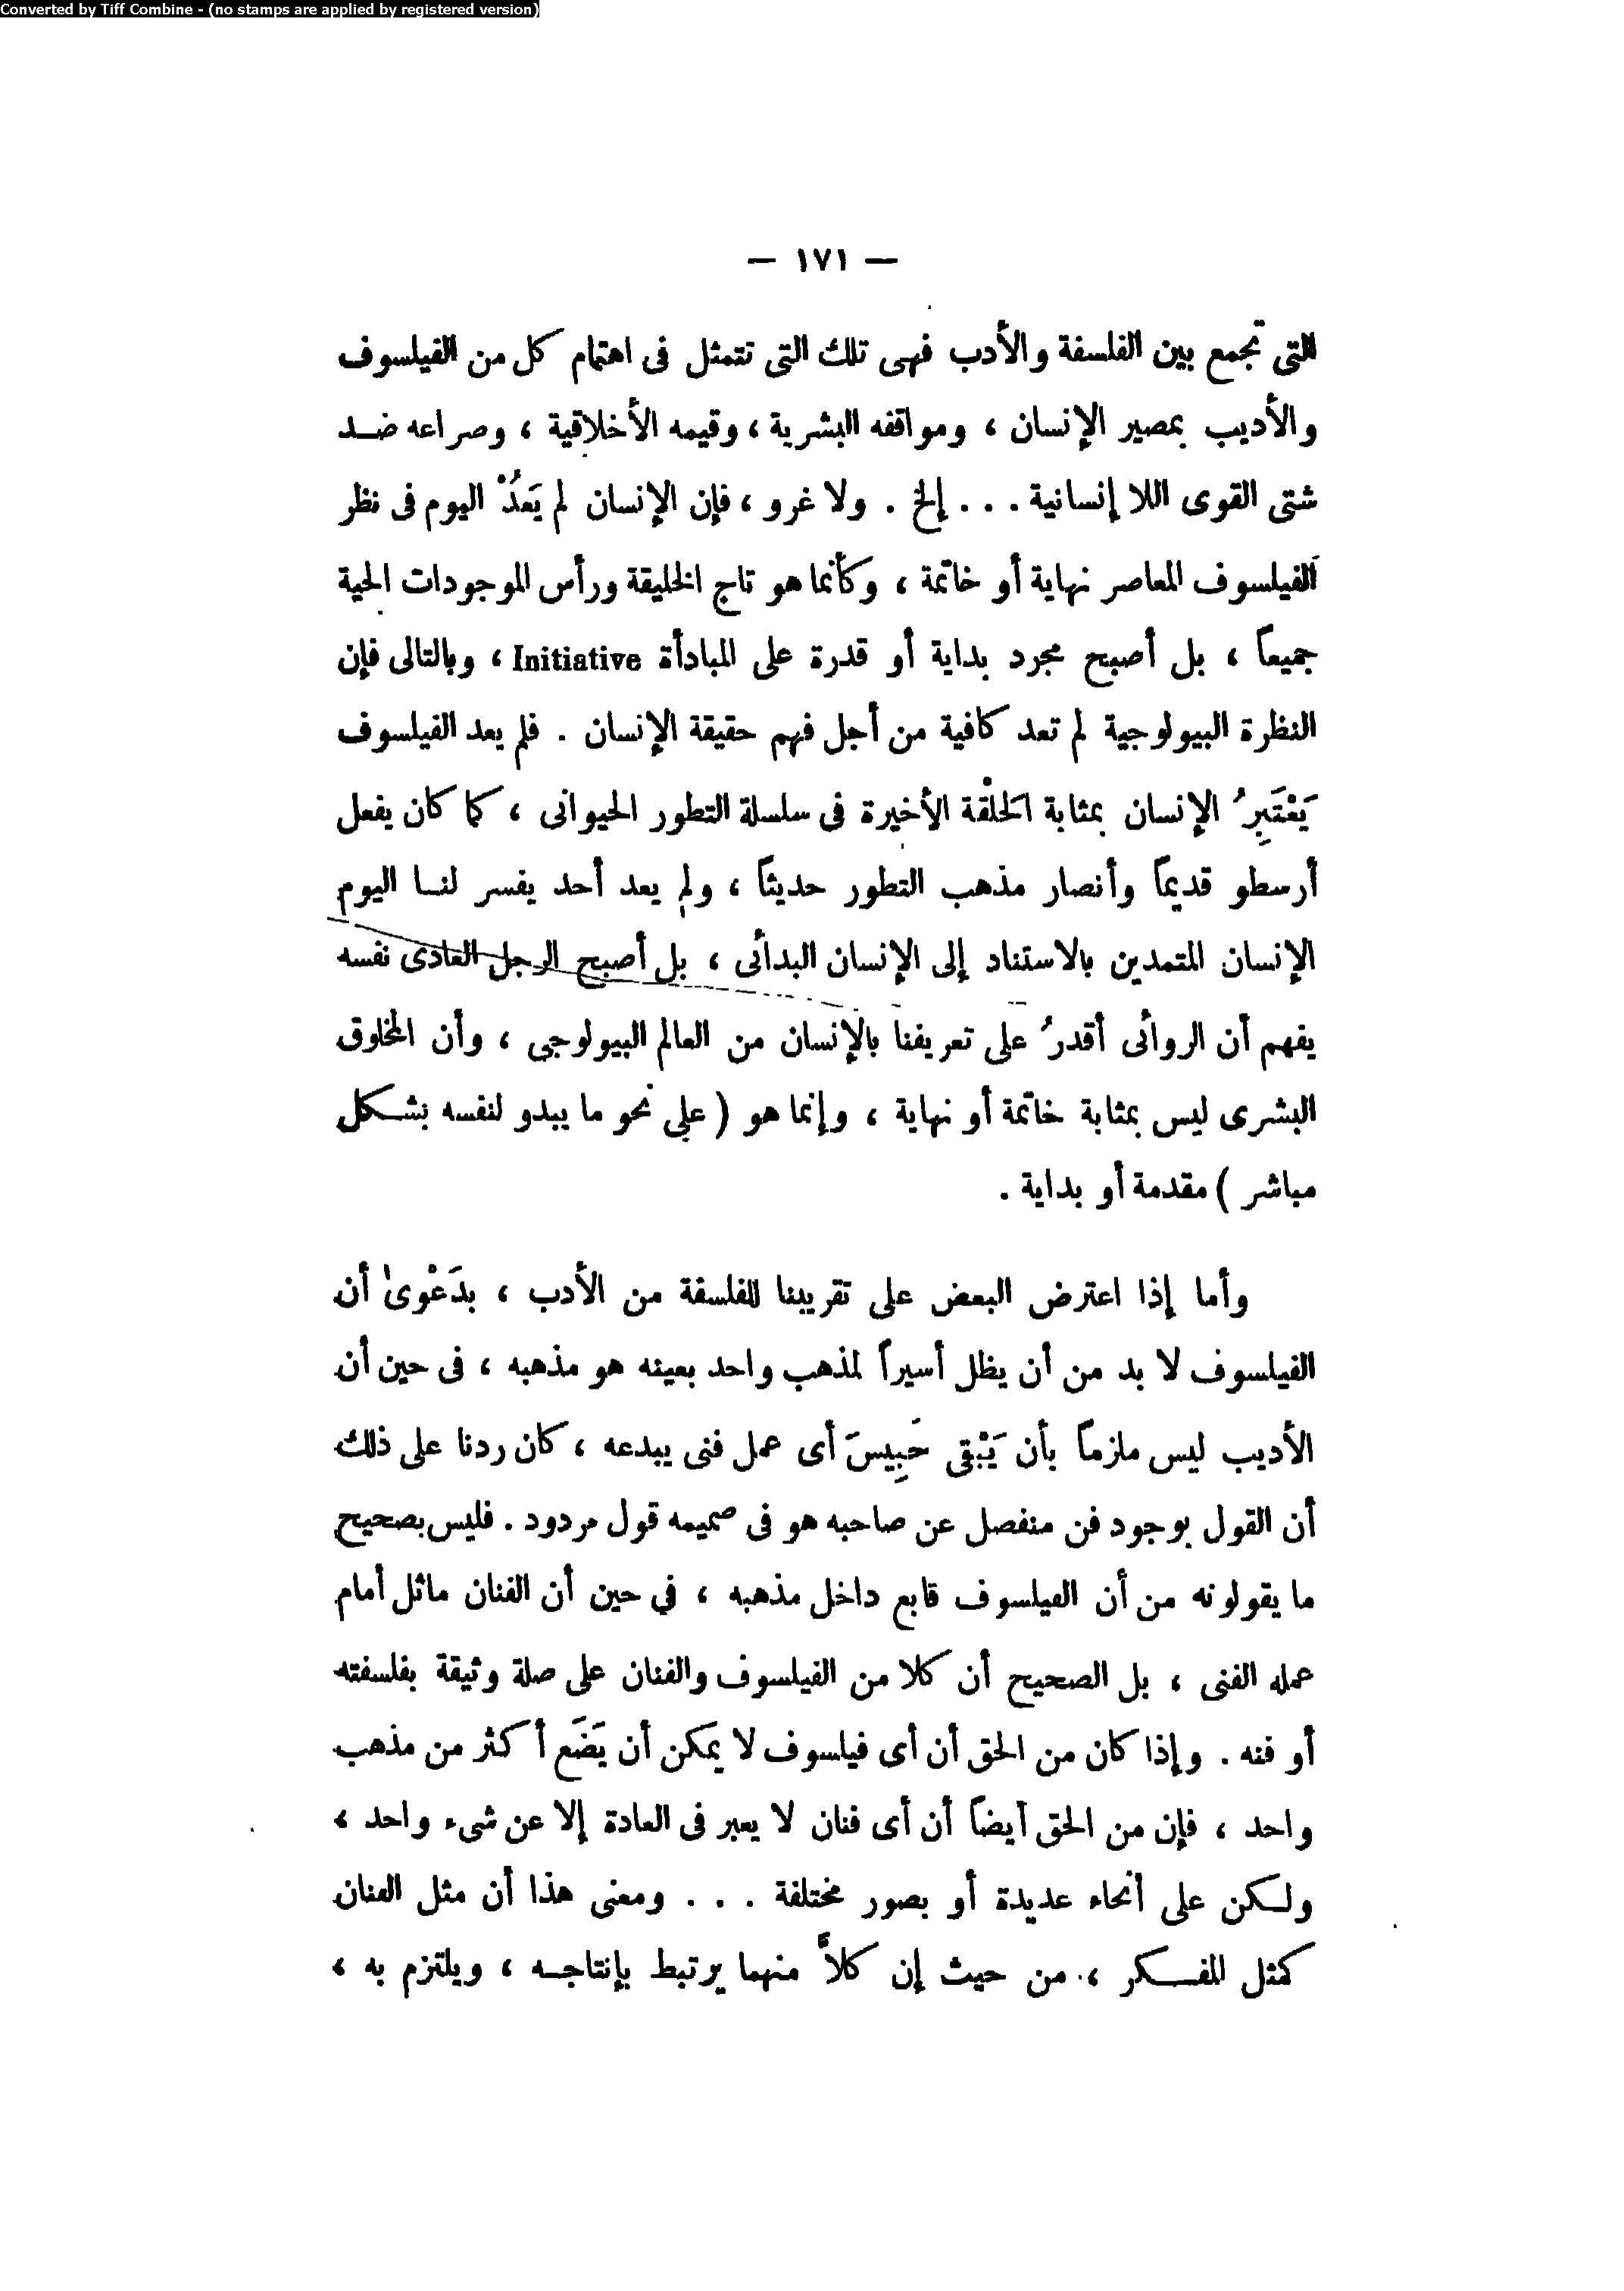 Converted by Tiff Combine - (no stamps are applied by registered version)
— ١٧١ —
التى تجمع بين الفلسفة والأدب فهى تلك التى تتمثل فى اهتمام كل من الفيلسوف
والأديب بمصير الإنسان ، ومواقفه البشرية ، وقيمه الأخلاقية ، وصراعه ضد
شتى القوى اللا إنسانية . . . إلخ . ولا غرو ، فإن الإنسان لم يَعُدْ اليوم فى نظر
الفيلسوف المعاصر نهاية أو خاتمة ، وكأنما هو تاج الخليقة ورأس الموجودات الحية
جميعاً ، بل أصبح مجرد بداية أو قدرة على المبادأة Initiative ، وبالتالى فإن
النظرة البيولوجية لم تعد كافية من أجل فهم حقيقة الإنسان . فلم يعد الفيلسوف
يَعْتَبِرُ الإنسان بمثابة الحلْقة الأخيرة فى سلسلة التطور الحيوانى ، كما كان يفعل
أرسطو قديماً وأنصار مذهب التطور حديثاً ، ولم يعد أحد يفسر لنا اليوم
الإنسان المتمدين بالاستناد إلى الإنسان البدأئى ، بل أصبح الرجل العادى نفسه
يفهم أن الروأئى أقدرُ على تعريفنا بالإنسان من العالم البيولوجى ، وأن المخلوق
البشرى ليس بمثابة خاتمة أو نهاية ، وإنما هو ( على نحو ما يبدو لنفسه بشكل
مباشر ) مقدمة أو بداية .
وأما إذا اعترض البعض على تقريبنا للفلسفة من الأدب ، بدَعْوىٰ أن
الفيلسوف لا بد من أن يظل أسيراً لمذهب واحد بعينه هو مذهبه ، فى حين أن
الأديب ليس ملزماً بأن يَبْقى حَبِيسَ أى عمل فنى يبدعه ، كان ردنا على ذلك
أن القول بوجود فن منفصل عن صاحبه هو فى صميمه قول مردود . فليس بصحيح
ما يقولونه من أن الفيلسوف قابع داخل مذهبه ، في حين أن الفنان ماثل أمام
عمله الفنى ، بل الصحيح أن كلا من الفيلسوف والفنان على صلة وثيقة بفلسفته
أو فنه . وإذا كان من الحق أن أى فيلسوف لا يمكن أن يَضَع أكثر من مذهب
واحد ، فإن من الحق أيضاً أن أى فنان لا يعبر فى العادة إلا عن شىء واحد ،
ولكن على أنحاء عديدة أو بصور مختلفة . . . ومعنى هذا أن مثل الفنان
كمثل المفكر ، من حيث إن كلاً منهما يرتبط بإنتاجه ، ويلتزم به ،